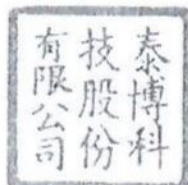 泰博科
技股份
有限公司